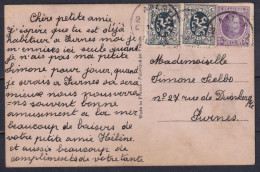 Chère petite amie
J'espère que tu est déjà
habituer a Furnes moi je
m'ennuies ici seule quand
je n'ais pas ma petite
Simone pour jouer, quand
se reverrons
nous nous
vous souhait bonne
amusement a la mer
beaucoup de baisers de
votre petite amie Hélène.
et aussi beaucoup de
compliments de votre tante
Mademoiselle
Simone
no 27 rue de Dunkerq
Furnes.